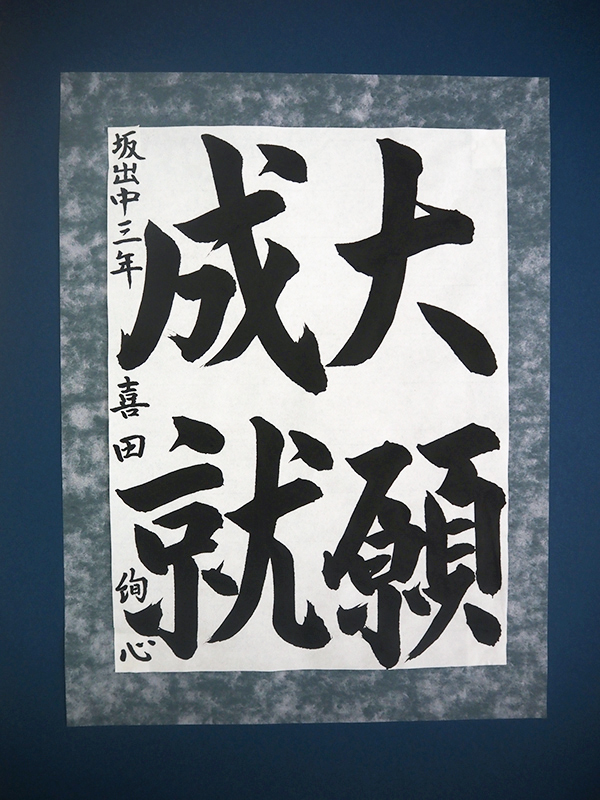 大願
成就
坂出中三年 喜田 絢心